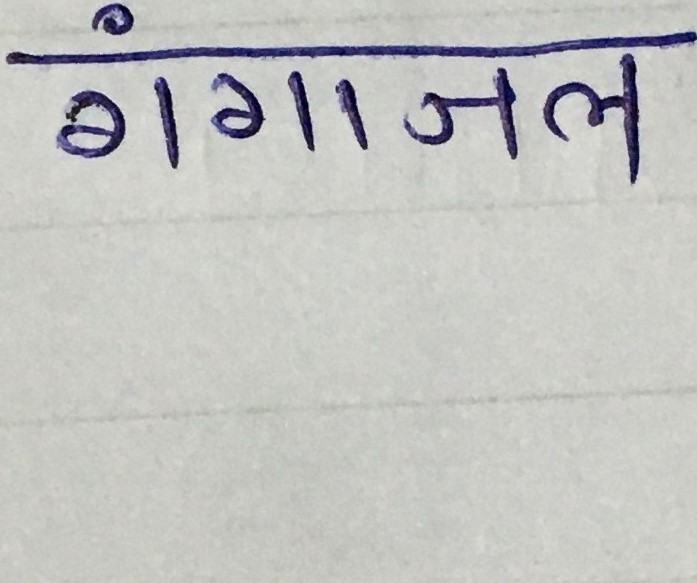 गंगाजल